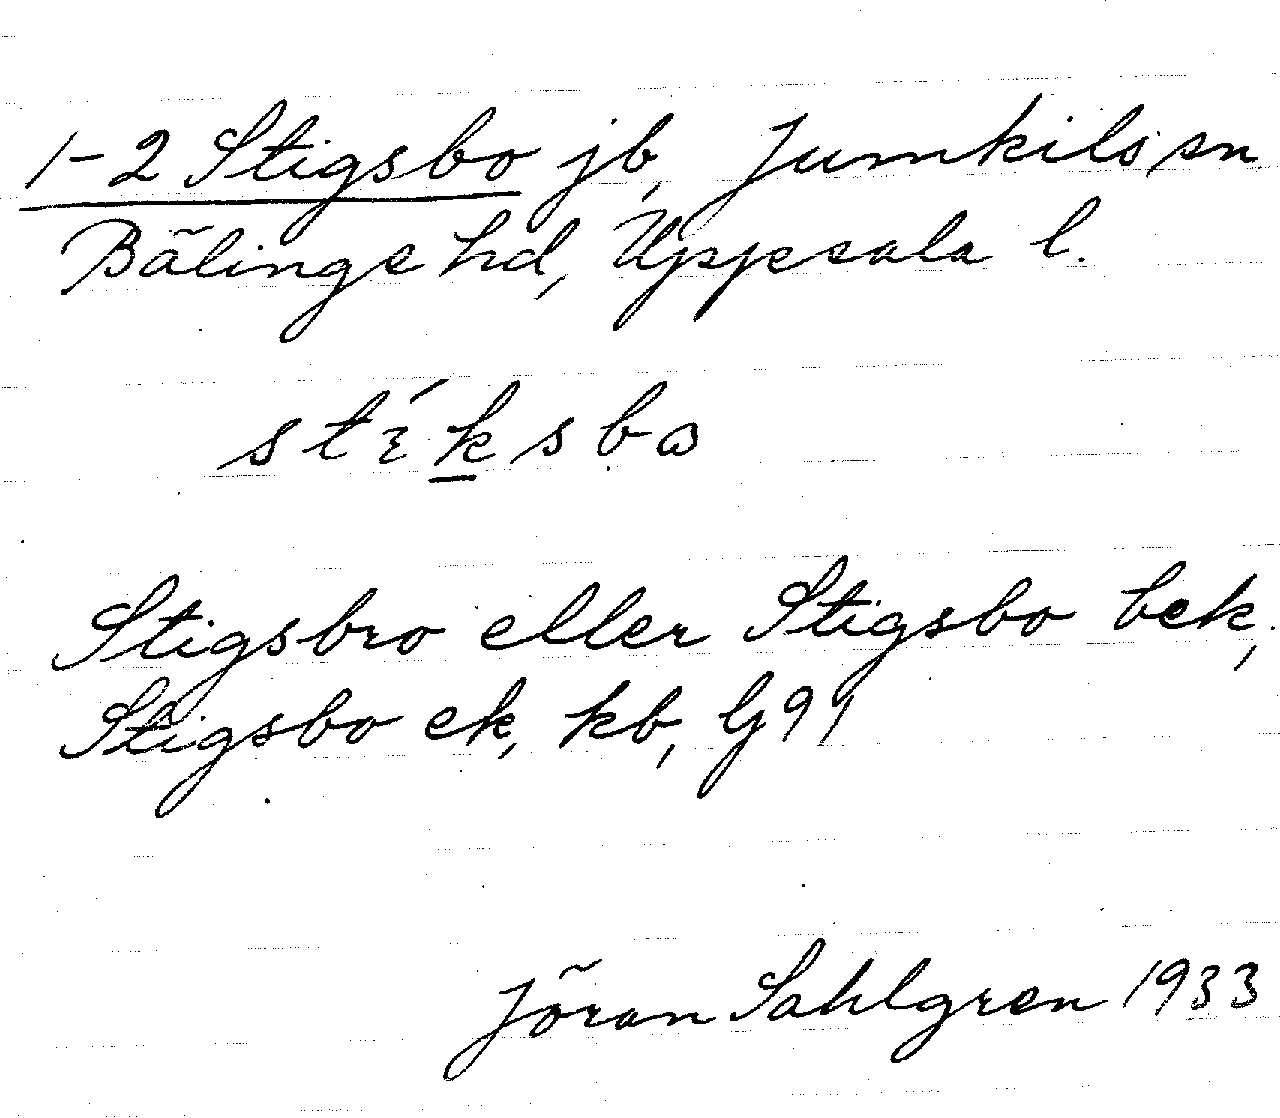 1-2 Stigsbo jb, Jumkils sn
Bälinge hd, Uppsala l.
stı́ksbω
Stigsbro eller Stigsbo bek,
Stigsbo ek, kb, Gj 91
Jöran Sahlgren 1933